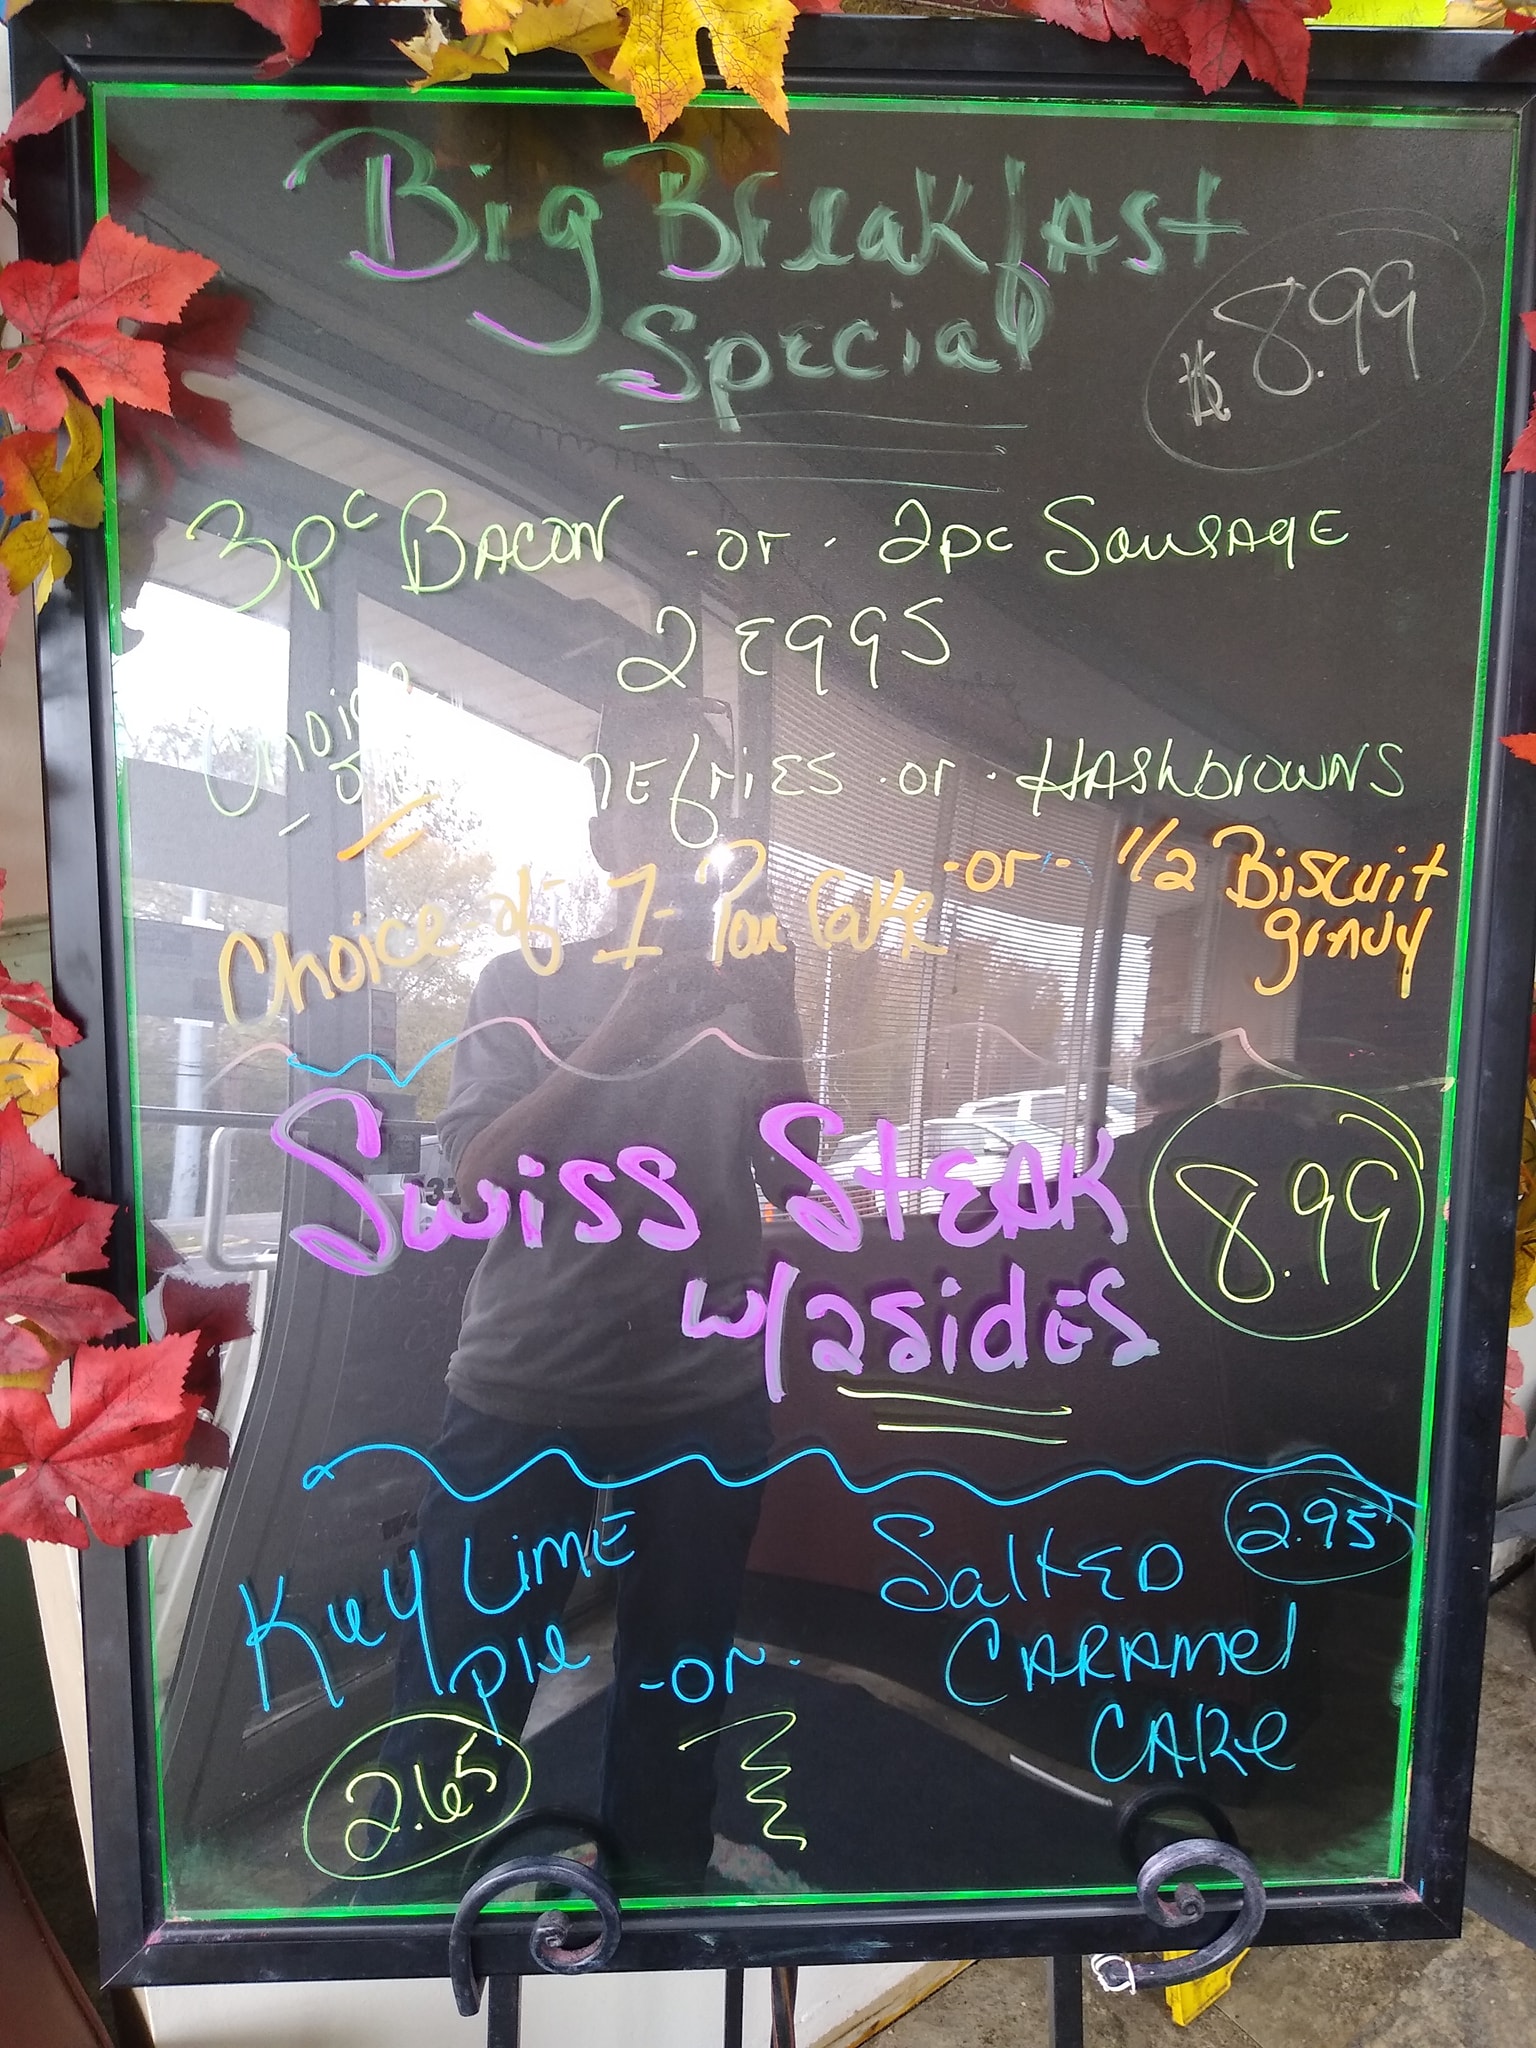 Big Breakfast
Special
$8.99
3pc Bacon -or- 2pc Sausage
2 Eggs
Choice of Homefries -or- Hashbrowns
Choice of 1 Pancake -or- 1/2 Biscuit
gravy
Swiss Steak
w/2 sides
8.99
Key Lime
Pie
2.65
-or-
Salted
Caramel
Cake
2.95